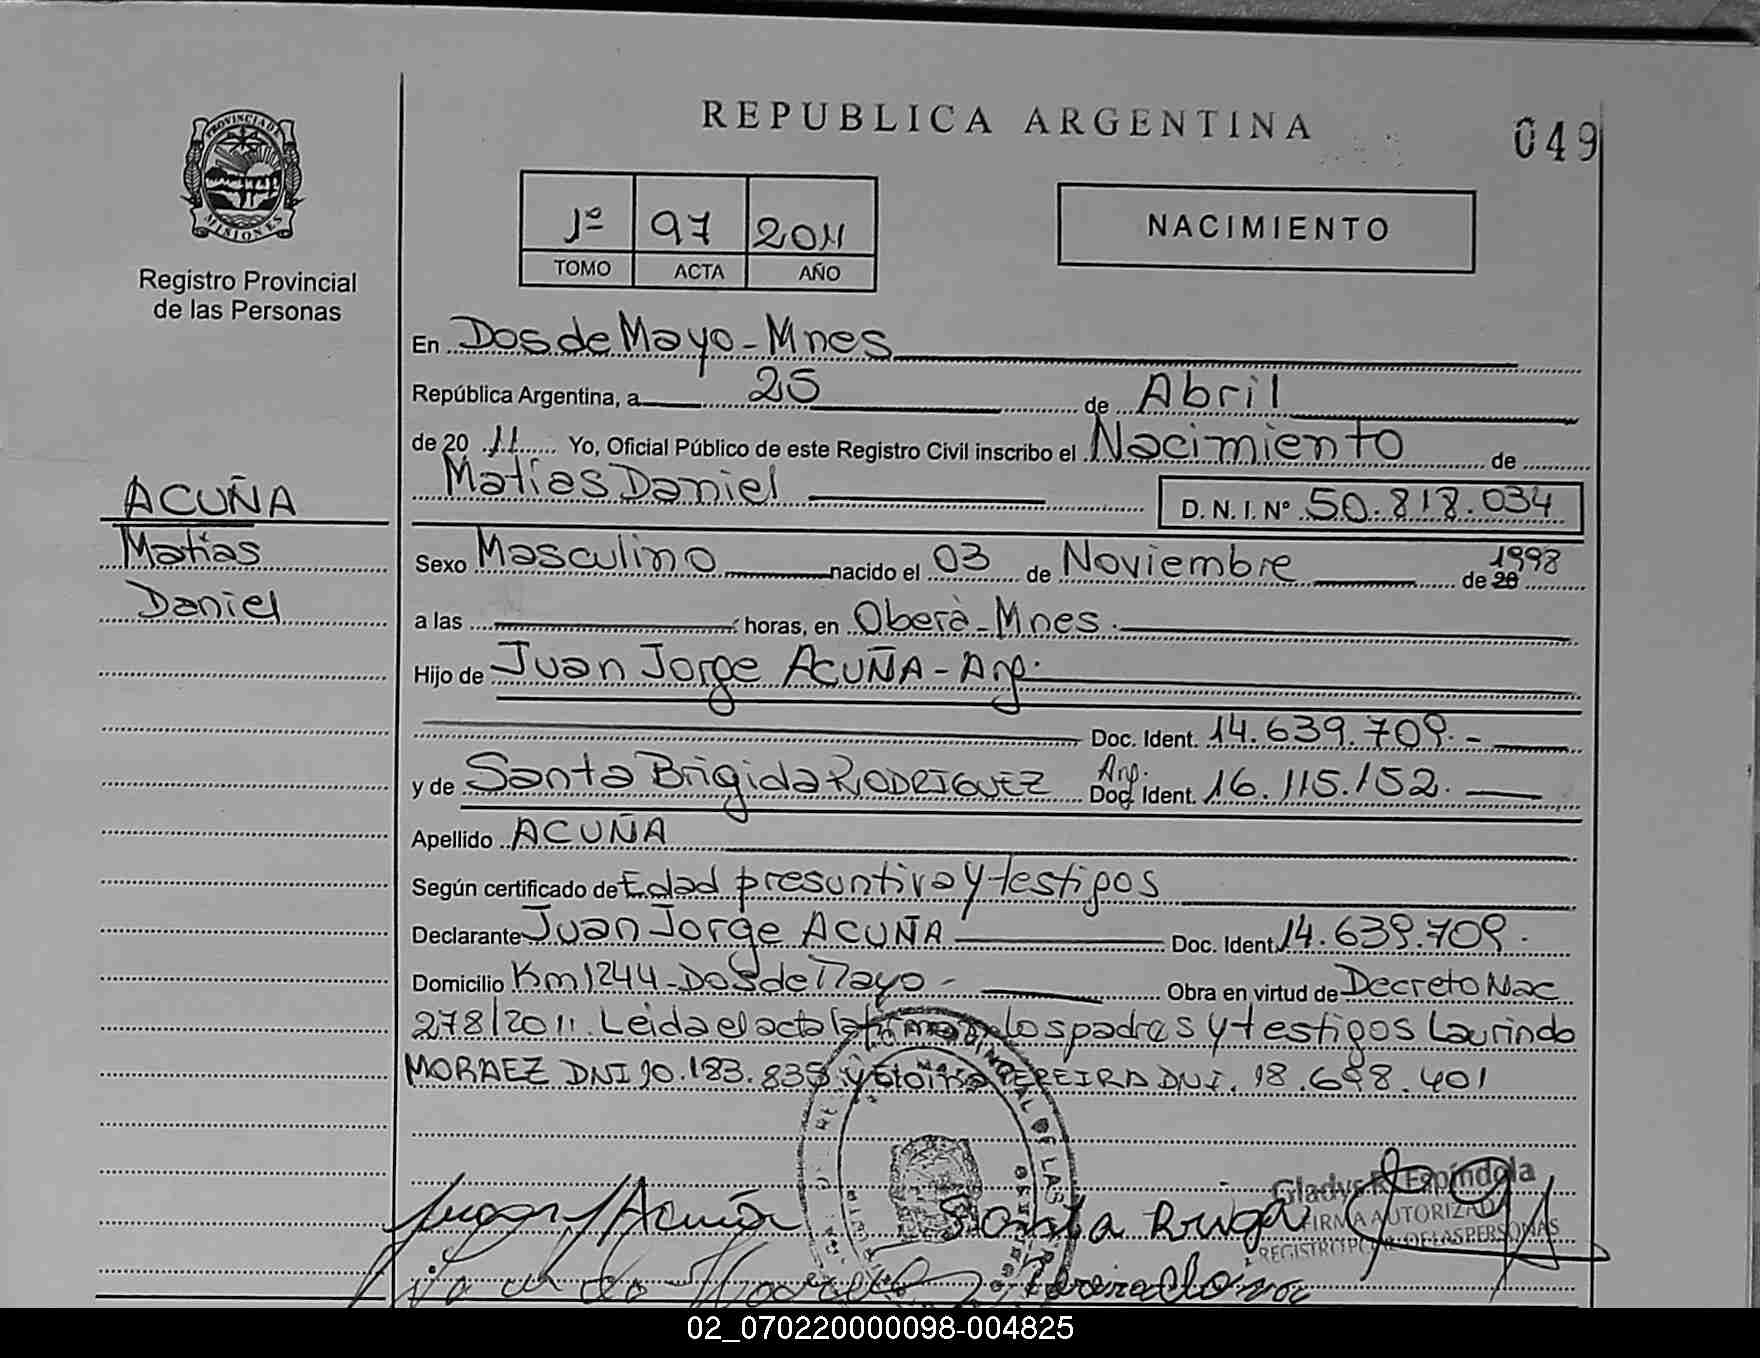 REPUBLICA ARGENTINA
049
PROVINCIA DE
MISIONES
Registro Provincial
de las Personas
1º 97 2011
TOMO ACTA AÑO
NACIMIENTO
En Dos de Mayo - Mnes
República Argentina, a 25 de Abril
de 20 11 Yo, Oficial Público de este Registro Civil inscribo el Nacimiento de
Matías Daniel D. N. I. Nº 50.818.034
ACUÑA
Matías
Daniel
Sexo Masculino nacido el 03 de Noviembre de 20 1998
a las horas, en Oberà - Mnes.
Hijo de Juan Jorge ACUÑA - Arg.
Doc. Ident. 14.639.709. -
y de Santa Brigida RODRIGUEZ Arg. Doc. Ident. 16.115.152.
Apellido ACUÑA
Según certificado de Edad presuntiva y testigos
Declarante Juan Jorge ACUÑA Doc. Ident. 14.639.709.
Domicilio Km 1244 - Dos de Mayo - Obra en virtud de Decreto Nac
278/2011. Leida el acta la firman los padres y testigos Laurindo
MORAEZ DNI 10.183.838 y PEREIRA DNI. 18.698.401
Juan J Acuña Santa Briga
Gladys E. Espíndola
FIRMA AUTORIZADA
REGISTRO PCIAL. DE LAS PERSONAS
02_070220000098-004825